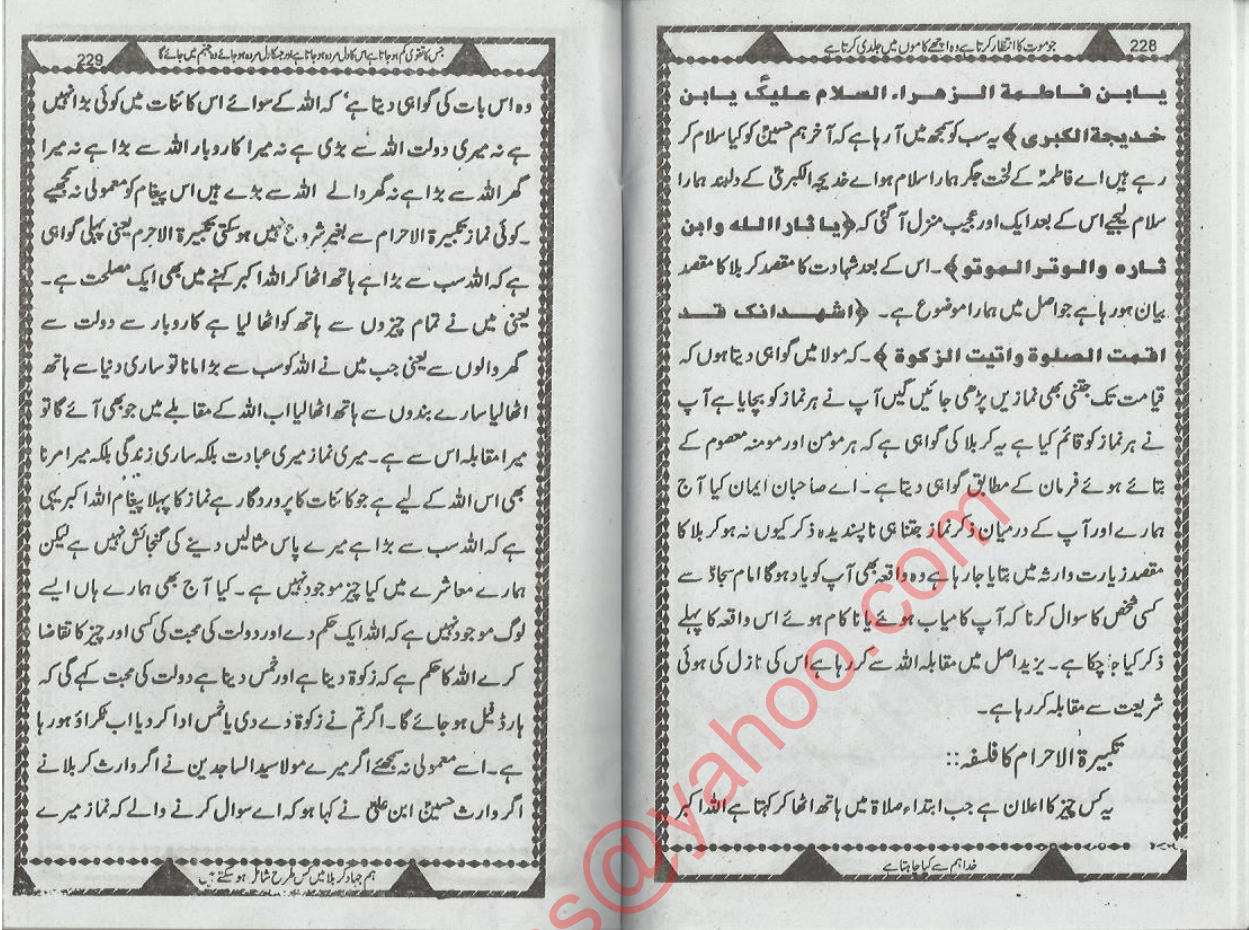 جو موت کا انتظار کرتا ہے وہ اچھے کاموں میں جلدی کرتا ہے
228
یابن فاطمۃ الزھراء السلام علیک یابن
خدیجۃ الکبری ﴾ یہ سب کو سمجھ میں آ رہا ہے کہ آخر ہم حسینؑ کو کیا سلام کر
رہے ہیں اے فاطمہؑ کے لخت جگر ہمارا سلام ہو اے خدیجہ الکبریؑ کے دلبند ہمارا
سلام لیجیے اس کے بعد ایک اور عجیب منزل آ گئی کہ ﴿یا ثار االلہ وابن
ثارہ والوتر الموتو﴾۔ اس کے بعد شہادت کا مقصد کربلا کا مقصد
بیان ہو رہا ہے جو اصل میں ہمارا موضوع ہے۔ ﴿اشھد انک قد
اقمت الصلوۃ واتیت الزکوۃ ﴾۔ کہ مولا میں گواہی دیتا ہوں کہ
قیامت تک جتنی بھی نمازیں پڑھی جائیں گیں آپ نے ہر نماز کو بچایا ہے آپ
نے ہر نماز کو قائم کیا ہے یہ کربلا کی گواہی ہے کہ ہر مومن اور مومنہ معصوم کے
بتائے ہوئے فرمان کے مطابق گواہی دیتا ہے۔ اے صاحبان ایمان کیا آج
ہمارے اور آپ کے درمیان ذکر نماز جتنا ہی ناپسندیدہ ذکر کیوں نہ ہو کربلا کا
مقصد زیارت وارثہ میں بتایا جا رہا ہے وہ واقعہ بھی آپ کو یاد ہوگا امام سجادؑ سے
کسی شخص کا سوال کرنا کہ آپ کامیاب ہوئے یا ناکام ہوئے اس واقعہ کا پہلے
ذکر کیا جا چکا ہے۔ یزید اصل میں مقابلہ اللہ سے کر رہا ہے اس کی نازل کی ہوئی
شریعت سے مقابلہ کر رہا ہے۔
تکبیرۃ الاحرام کا فلسفہ::
یہ کس چیز کا اعلان ہے جب ابتداء صلاۃ میں ہاتھ اٹھا کر کہتا ہے اللہ اکبر
خدا ہم سے کیا چاہتا ہے
جس کا تقوی کم ہو جاتا ہے اس کا دل مردہ ہو جاتا ہے اور جسکا دل مردہ ہو جائے وہ جہنم میں جائے گا
229
وہ اس بات کی گواہی دیتا ہے' کہ اللہ کے سوائے اس کائنات میں کوئی بڑا نہیں
ہے نہ میری دولت اللہ سے بڑی ہے نہ میرا کاروبار اللہ سے بڑا ہے نہ میرا
گھر اللہ سے بڑا ہے نہ گھر والے اللہ سے بڑے ہیں اس پیغام کو معمولی نہ سمجھیے
۔ کوئی نماز تکبیرۃ الاحرام سے بغیر شروع نہیں ہو سکتی تکبیرۃ الاحرم یعنی پہلی گواہی
ہے کہ اللہ سب سے بڑا ہے ہاتھ اٹھا کر اللہ اکبر کہنے میں بھی ایک مصلحت ہے۔
یعنی میں نے تمام چیزوں سے ہاتھ کو اٹھا لیا ہے کاروبار سے دولت سے
گھر والوں سے یعنی جب میں نے اللہ کو سب سے بڑا مانا تو ساری دنیا سے ہاتھ
اٹھا لیا سارے بندوں سے ہاتھ اٹھا لیا اب اللہ کے مقابلے میں جو بھی آئے گا تو
میرا مقابلہ اس سے ہے۔ میری نماز میری عبادت بلکہ ساری زندگی بلکہ میرا مرنا
بھی اس اللہ کے لیے ہے جو کائنات کا پروردگار ہے نماز کا پہلا پیغام اللہ اکبر یہی
ہے کہ اللہ سب سے بڑا ہے میرے پاس مثالیں دینے کی گنجائش نہیں ہے لیکن
ہمارے معاشرے میں کیا چیز موجود نہیں ہے۔ کیا آج بھی ہمارے ہاں ایسے
لوگ موجود نہیں ہے کہ اللہ ایک حکم دے اور دولت کی محبت کی کسی اور چیز کا تقاضا
کرے اللہ کا حکم ہے کہ زکوۃ دینا ہے اور خمس دینا ہے دولت کی محبت کہے گی کہ
ہارڈ فیل ہو جائے گا۔ اگر تم نے زکوۃ دے دی یا خمس ادا کر دیا اب ٹکراؤ ہو رہا
ہے۔ اسے معمولی نہ سمجھئے اگر میرے مولا سید الساجدین نے اگر وارث کربلا نے
اگر وارث حسینؑ ابن علیؑ نے کہا ہو کہ اے سوال کرنے والے کہ نماز میرے
ہم جہاد کربلا میں کس طرح شامل ہو سکتے ہیں
s@yahoo.com